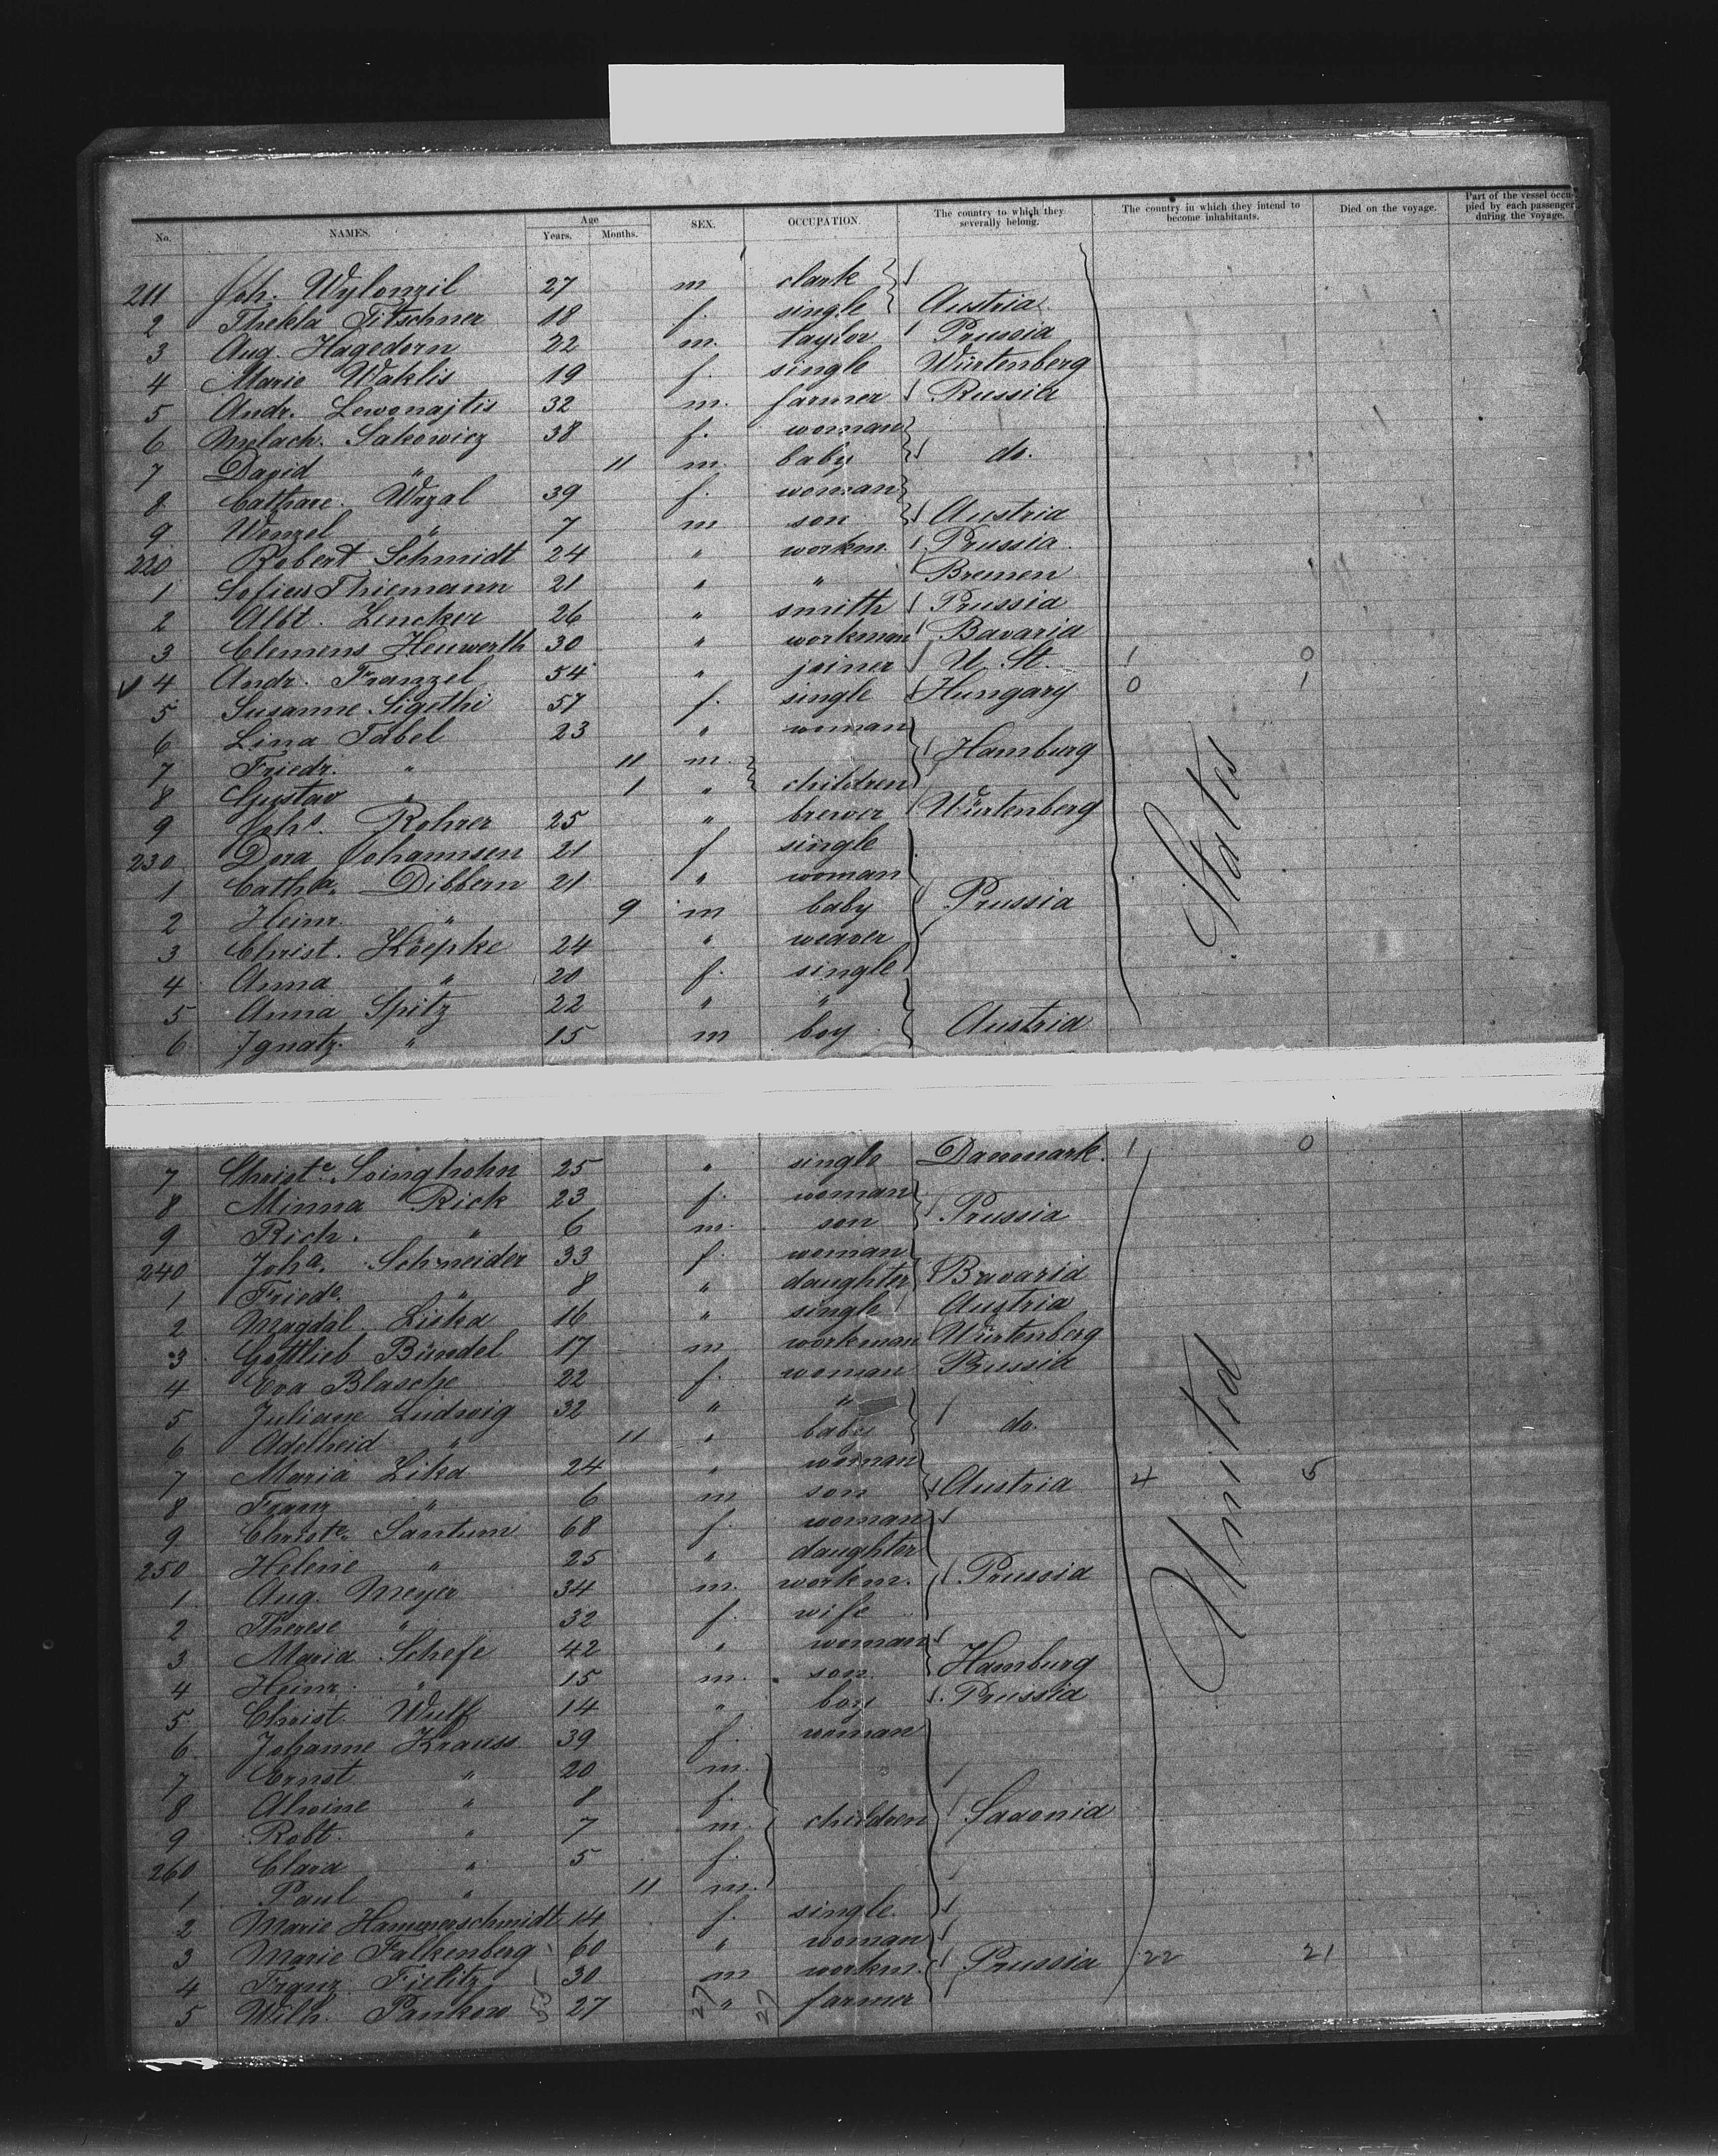 No. NAMES. Age Years. Months. SEX. OCCUPATION. The country to which they severally belong. The country in which they intend to become inhabitants. Died on the voyage. Part of the vessel occupied by each passenger during the voyage.
211 Joh. Wylonzil 27 m clark
2 Thekla Titschner 18 f. single Austria
3 Aug. Hagedorn 22 m. taylor Prussia
4 Marie Waklis 19 f. single Würtenberg
5 Andr. Lewonajtis 32 m. farmer Russia
6 Malach. Sakowicz 38 f. woman
7 David " 11 m. baby do.
8 Cathare. Wrzal 39 f. woman
9 Wenzel " 7 m son Austria
220 Robert Schmidt 24 " workm. Prussia
1 Sofius Thiemann 21 " " Bremen
2 Albt. Lencker 26 " smith Prussia
3 Clemens Heuwerth 30 " workman Bavaria
4 Andr. Franzel 54 " joiner U. St. 1 0
5 Susanne Sigethi 57 f. single Hungary 0 1
6 Lina Tabel 23 " woman
7 Friedr. " 11 m. Hamburg
8 Gustav " 1 " children
9 Johs. Rohrer 25 " brewer Würtenberg
230 Dora Johannsen 21 f single
1 Catha. Dibbern 21 " woman
2 Heinr. " 9 m baby Prussia
3 Christ. Köepke 24 " weaver
4 Anna " 20 f. single
5 Anna Spitz 22 " "
6 Ignatz " 15 m boy Austria
States
7 Christe. Soinghohn 25 " single Danmark. 1 0
8 Minna Rick 23 f. woman
9 Rich. " 6 m. son Prussia
240 Joha. Schneider 33 f. woman
1 Friede. " 8 " daughter Bavaria
2 Magdal. Liska 16 " single Austria
3 Gottlieb Bündel 17 m workman Würtenberg
4 Eva Blasche 22 f. woman Russia
5 Juliane Ludwig 32 " "
6 Adelheid " 11 " baby do.
7 Maria Lika 24 " woman
8 Franz " 6 m son Austria 4 5
9 Christe. Santum 68 f. woman
250 Helene " 25 " daughter
1 Aug. Meyer 34 m. workm. Prussia
2 Therese " 32 f. wife
3 Maria Schefe 42 " woman
4 Heinr. " 15 m. son Hamburg
5 Christ. Wulf 14 " boy Prussia
6 Johanne Krauss 39 f. woman
7 Ernst " 20 m.
8 Alwine " 8 f.
9 Robt. " 7 m. children Saxonia
260 Clara " 5 f.
1 Paul " 11 m.
2 Marie Hammerschmidt 14 f. single
3 Marie Falkenberg 60 " woman
4 Franz Fielitz 30 m workm. Prussia 22 21
5 Wilh. Pankow 27 " farmer
27 27
United